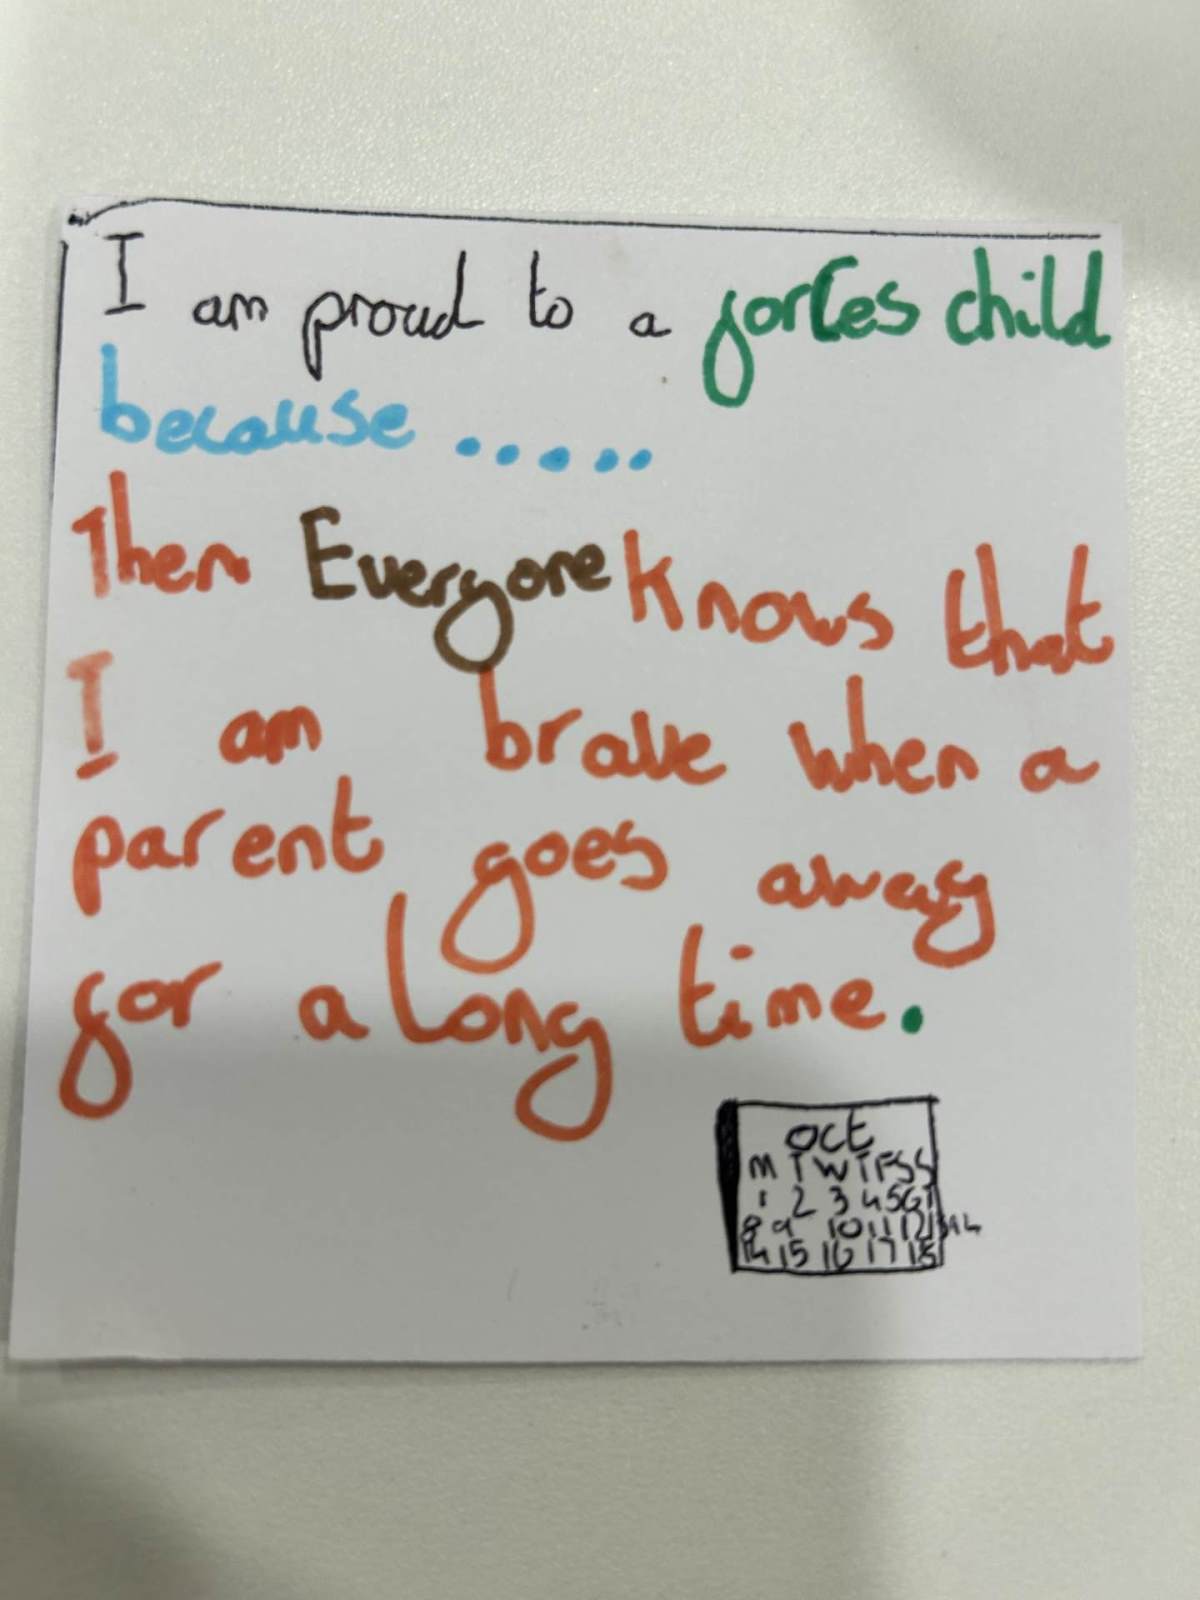 I am proud to a forces child
because .....
Then Everyone knows that
I am brave when a
parent goes away
for a long time.
oct
M T W T F S S
1 2 3 4 5 6 7
8 9 10 11 12 13 14
14 15 16 17 18